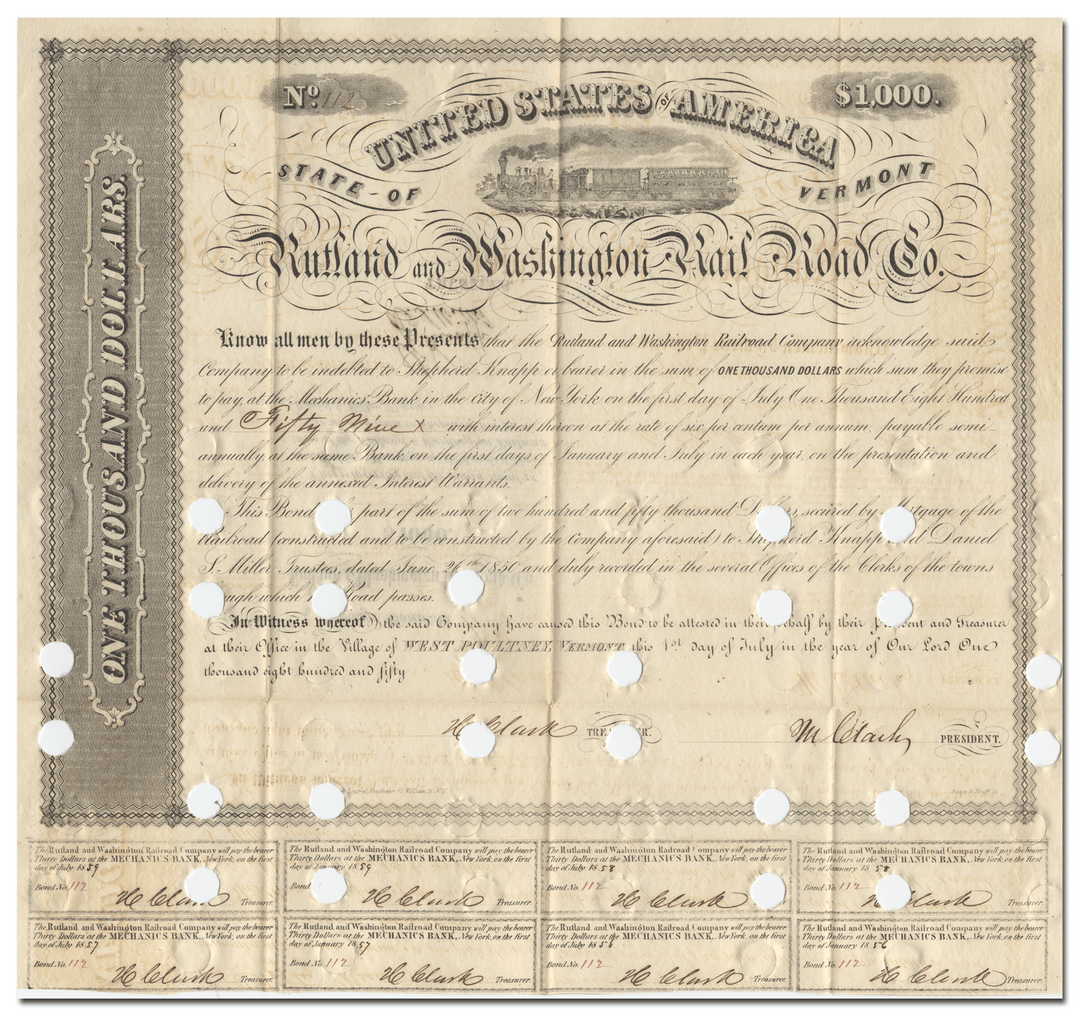 No 112
$1,000.
UNITED STATES OF AMERICA
STATE OF VERMONT
Rutland and Washington Rail Road Co.
ONE THOUSAND DOLLARS.
Know all men by these Presents that the Rutland and Washington Railroad Company acknowledge said
Company to be indebted to Shepherd Knapp or bearer in the sum of ONE THOUSAND DOLLARS which sum they promise
to pay at the Mechanics Bank in the City of New York on the first day of July One Thousand Eight Hundred
and Fifty Nine X with interest thereon at the rate of six per centum per annum, payable semi
annually, at the same Bank, on the first days of January and July in each year, on the presentation and
delivery of the annexed Interest Warrants.
This Bond part of the sum of two hundred and fifty thousand secured by of the
Railroad (constructed and to be constructed by the Company aforesaid) to Shepherd Knapp Daniel
S. Miller Trustees, dated June 26th 1850 and duly recorded in the several Offices of the Clerks of the towns
which Road passes.
In Witness whereof the said Company have caused this Bond to be attested in their by their and Treasurer
at their Office in the Village of WEST POULTNEY, VERMONT this 1st day of July in the year of Our Lord One
thousand eight hundred and fifty
H Clark M Clark PRESIDENT.
The Rutland and Washington Railroad Company will pay the bearer
Thirty Dollars at the MECHANICS BANK, New York, on the first
day of July 1859
Bond No. 112
H Clark Treasurer.
The Rutland and Washington Railroad Company will pay the bearer
Thirty Dollars at the MECHANICS BANK, New York, on the first
day of January 1859
Bond
H Clark Treasurer.
The Rutland and Washington Railroad Company will pay the bearer
Thirty Dollars at the MECHANICS BANK, New York, on the first
day of July 1858
Bond No. 112
H Clark Treasurer.
The Rutland and Washington Railroad Company will pay the bearer
Thirty Dollars at the MECHANICS BANK, New York, on the first
day of January 1858
Bond No. 112
H Clark Treasurer.
The Rutland and Washington Railroad Company will pay the bearer
Thirty Dollars at the MECHANICS BANK, New York, on the first
day of July 1857
Bond No. 112
H Clark Treasurer.
The Rutland and Washington Railroad Company will pay the bearer
Thirty Dollars at the MECHANICS BANK, New York, on the first
day of January 1857
Bond No. 112
H Clark Treasurer.
The Rutland and Washington Railroad Company will pay the bearer
Thirty Dollars at the MECHANICS BANK, New York, on the first
day of July 1856
Bond No. 112
H Clark Treasurer.
The Rutland and Washington Railroad Company will pay the bearer
Thirty Dollars at the MECHANICS BANK, New York, on the first
day of January 1856
Bond No. 112
H Clark Treasurer.